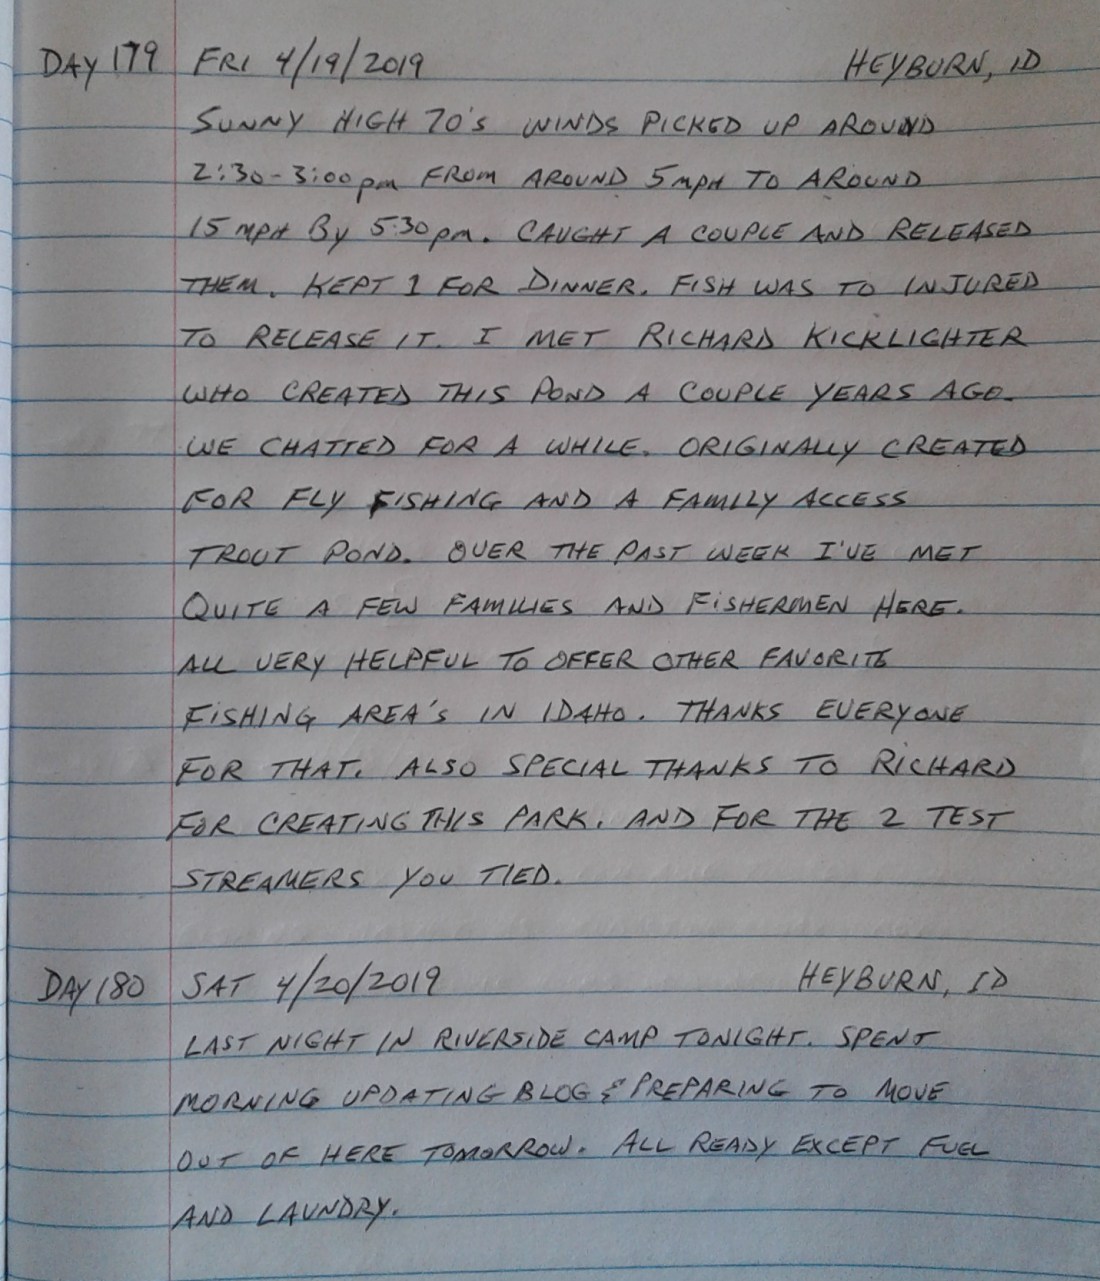 DAY 179 FRI 4/19/2019 HEYBURN, ID
SUNNY HIGH 70's WINDS PICKED UP AROUND
2:30-3:00pm FROM AROUND 5mpH TO AROUND
15 mpH By 5:30pm. CAUGHT A COUPLE AND RELEASED
THEM. KEPT 1 FOR DINNER. FISH WAS TO INJURED
TO RELEASE IT. I MET RICHARD KICKLIGHTER
WHO CREATED THIS POND A COUPLE YEARS AGO.
WE CHATTED FOR A WHILE. ORIGINALLY CREATED
FOR FLY FISHING AND A FAMILY ACCESS
TROUT POND. OVER THE PAST WEEK I'VE MET
QUITE A FEW FAMILIES AND FISHERMEN HERE.
ALL VERY HELPFUL TO OFFER OTHER FAVORITE
FISHING AREA'S IN IDAHO. THANKS EVERYONE
FOR THAT. ALSO SPECIAL THANKS TO RICHARD
FOR CREATING THIS PARK. AND FOR THE 2 TEST
STREAMERS YOU TIED.
DAY 180 SAT 4/20/2019 HEYBURN, ID
LAST NIGHT IN RIVERSIDE CAMP TONIGHT. SPENT
MORNING UPDATING BLOG & PREPARING TO MOVE
OUT OF HERE TOMORROW. ALL READY EXCEPT FUEL
AND LAUNDRY.